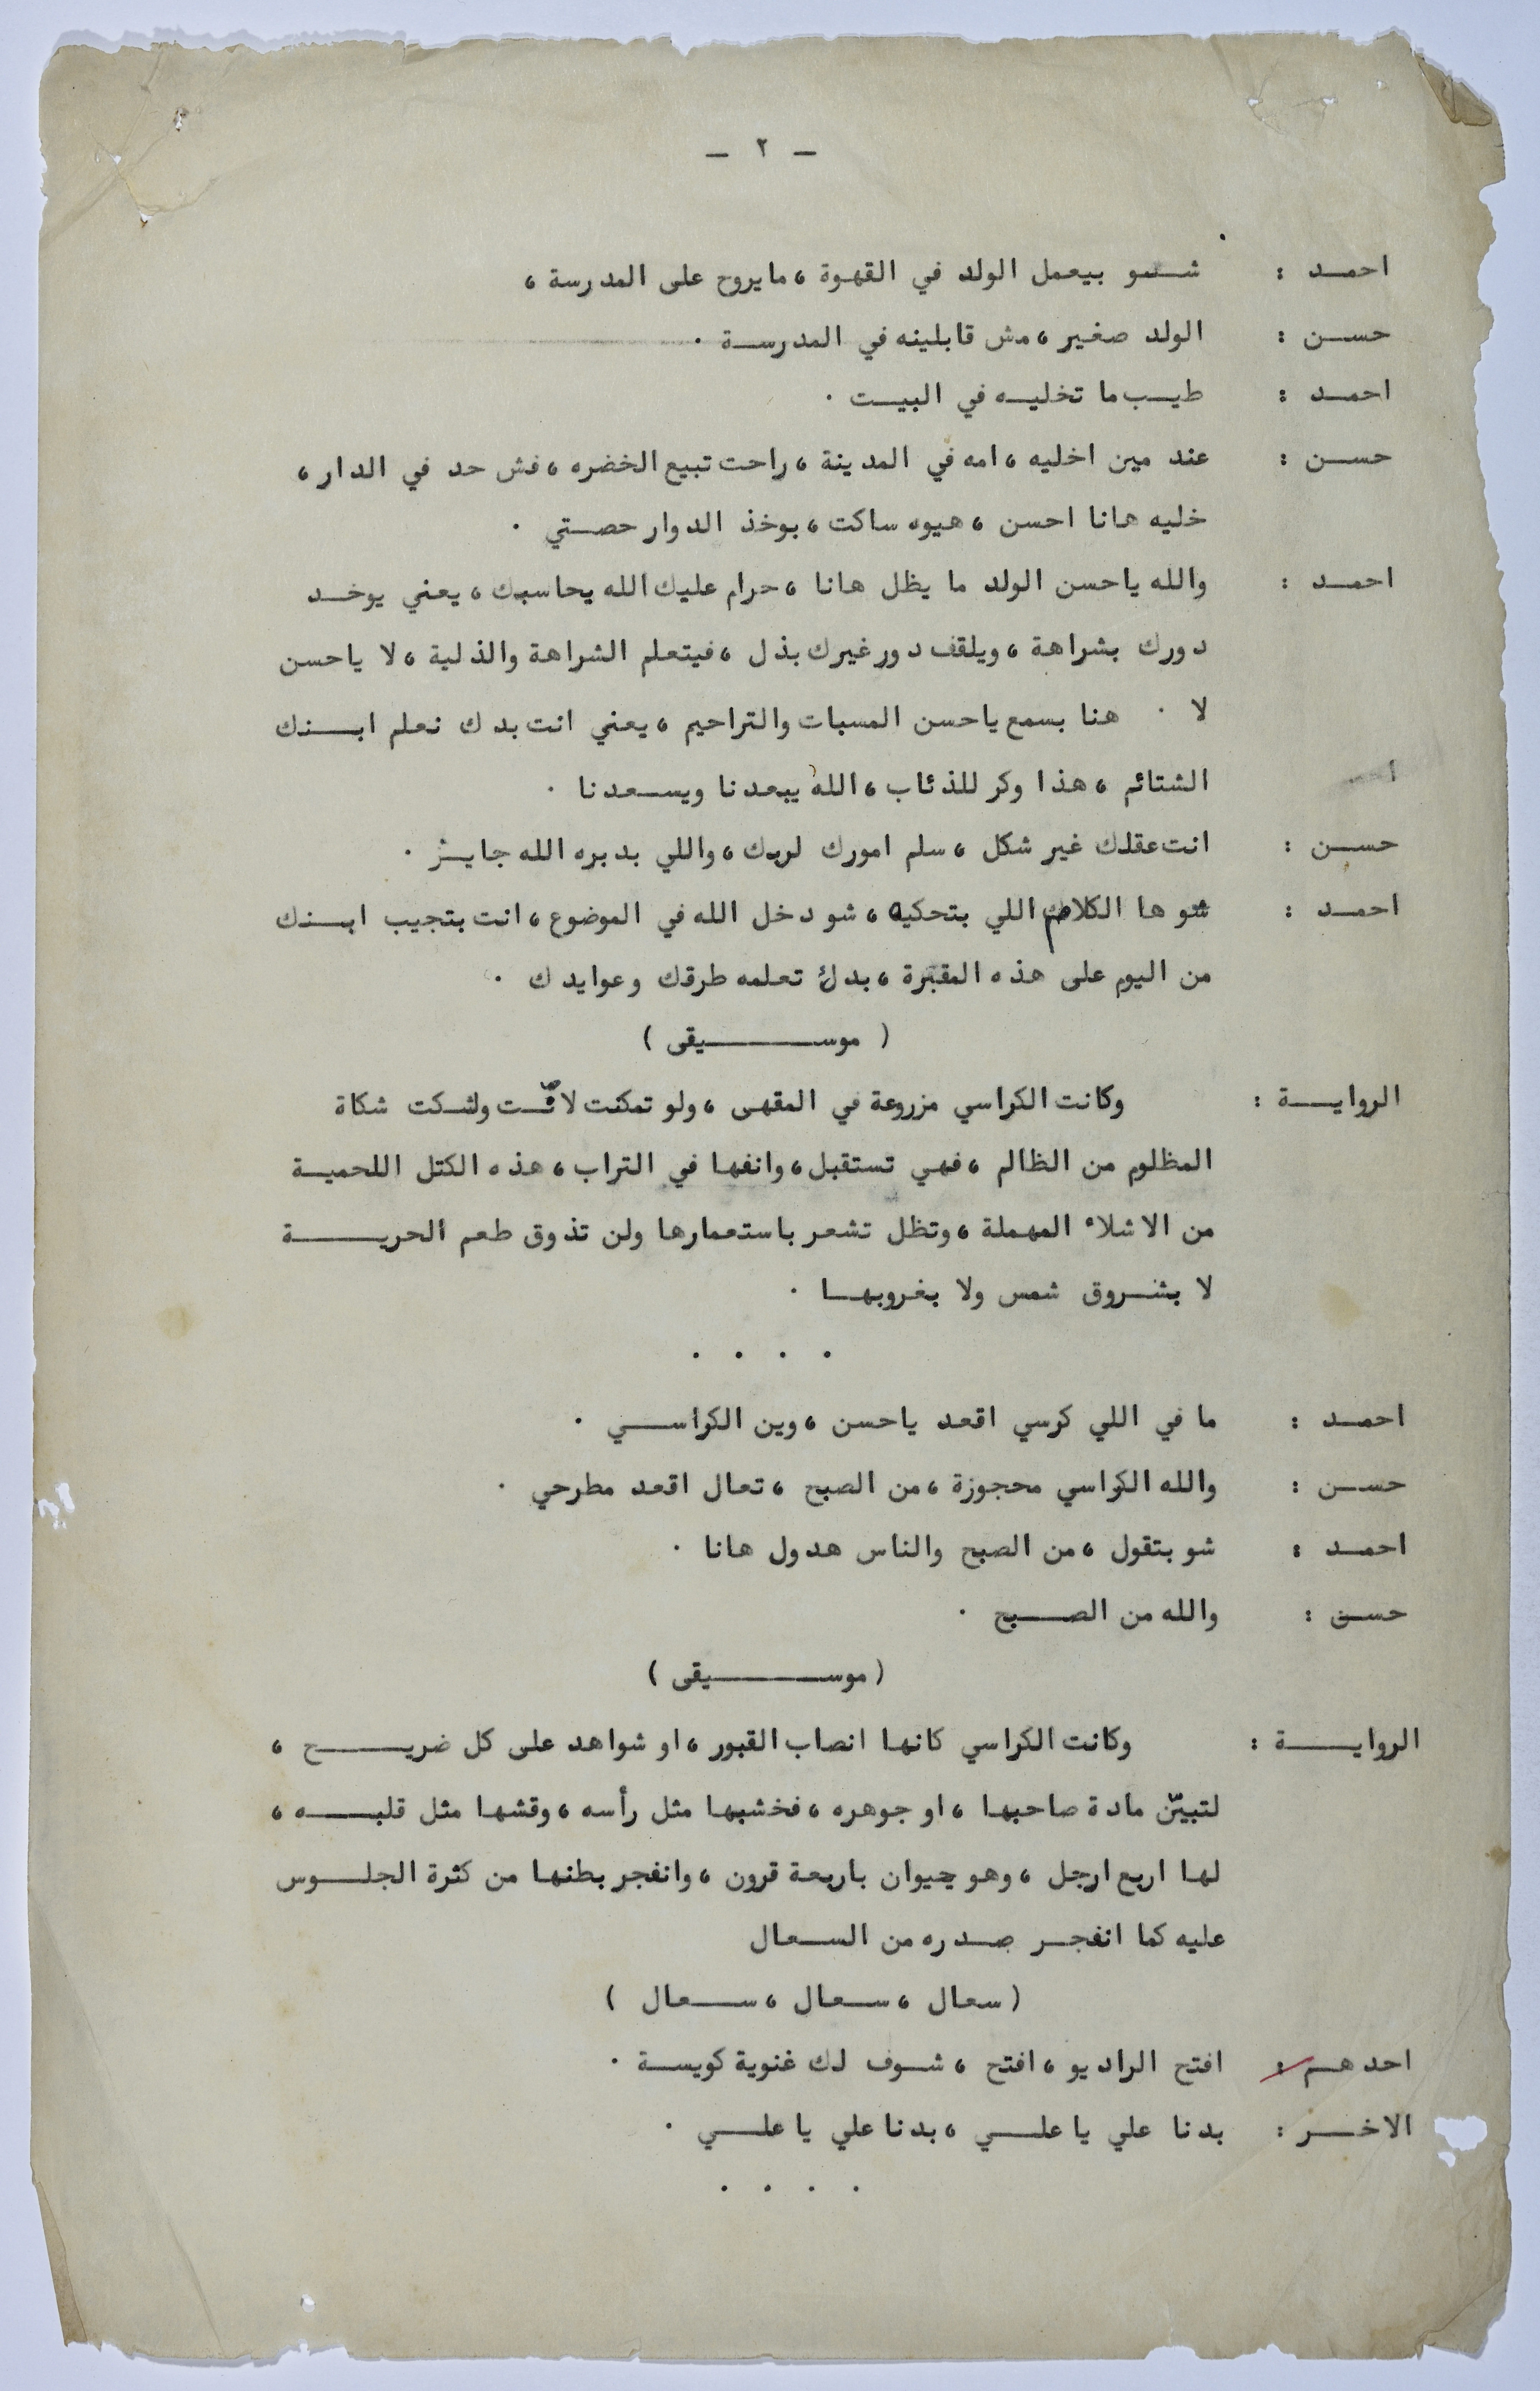 — ٢ —
احمد : شو بيعمل الولد في القهوة ، مايروح على المدرسة ،
حسن : الولد صغير ، مش قابلينه في المدرسة .
احمد : طيب ما تخليه في البيت .
حسن : عند مين اخليه ، امه في المدينة ، راحت تبيع الخضره ، فش حد في الدار ،
خليه هانا احسن ، هيوه ساكت ، بوخذ الدوار حصتي .
احمد : والله ياحسن الولد ما يظل هانا ، حرام عليك الله يحاسبك ، يعني يوخد
دورك بشراهة ، ويلقف دور غيرك بذل ، فيتعلم الشراهة والذلية ، لا ياحسن
لا . هنا بسمع ياحسن المسبات والتراحيم ، يعني انت بدك نعلم ابنك
الشتائم ، هذا وكر للذئاب ، الله يبعدنا ويسعدنا .
حسن : انت عقلك غير شكل ، سلم امورك لربك ، واللي بدبره الله جايز .
احمد : شو ها الكلام اللي بتحكيه ، شو دخل الله في الموضوع ، انت بتجيب ابنك
من اليوم على هذه المقبرة ، بدك تعلمه طرقك وعوايدك .
( موسيقى )
الرواية : وكانت الكراسي مزروعة في المقهى ، ولو تمكنت ولشكت شكاة
المظلوم من الظالم ، فهي تستقبل ، وانفها في التراب ، هذه الكتل اللحمية
من الاشلاء المهملة ، وتظل تشعر باستعمارها ولن تذوق طعم الحرية
لا بشروق شمس ولا بغروبها .
. . . .
احمد : ما في اللي كرسي اقعد ياحسن ، وين الكراسي .
حسن : والله الكراسي محجوزة ، من الصبح ، تعال اقعد مطرحي .
احمد : شو بتقول ، من الصبح والناس هدول هانا .
حسن : والله من الصبح .
( موسيقى )
الرواية : وكانت الكراسي كانها انصاب القبور ، او شواهد على كل ضريح ،
لتبيّن مادة صاحبها ، او جوهره ، فخشبها مثل رأسه ، وقشها مثل قلبه ،
لها اربع ارجل ، وهو حيوان باربعة قرون ، وانفجر بطنها من كثرة الجلوس
عليه كما انفجر صدره من السعال
( سعال ، سعال ، سعال )
احدهم : افتح الراديو ، افتح ، شوف لك غنوية كويسة .
الاخر : بدنا علي يا علي ، بدنا علي يا علي .
. . . .